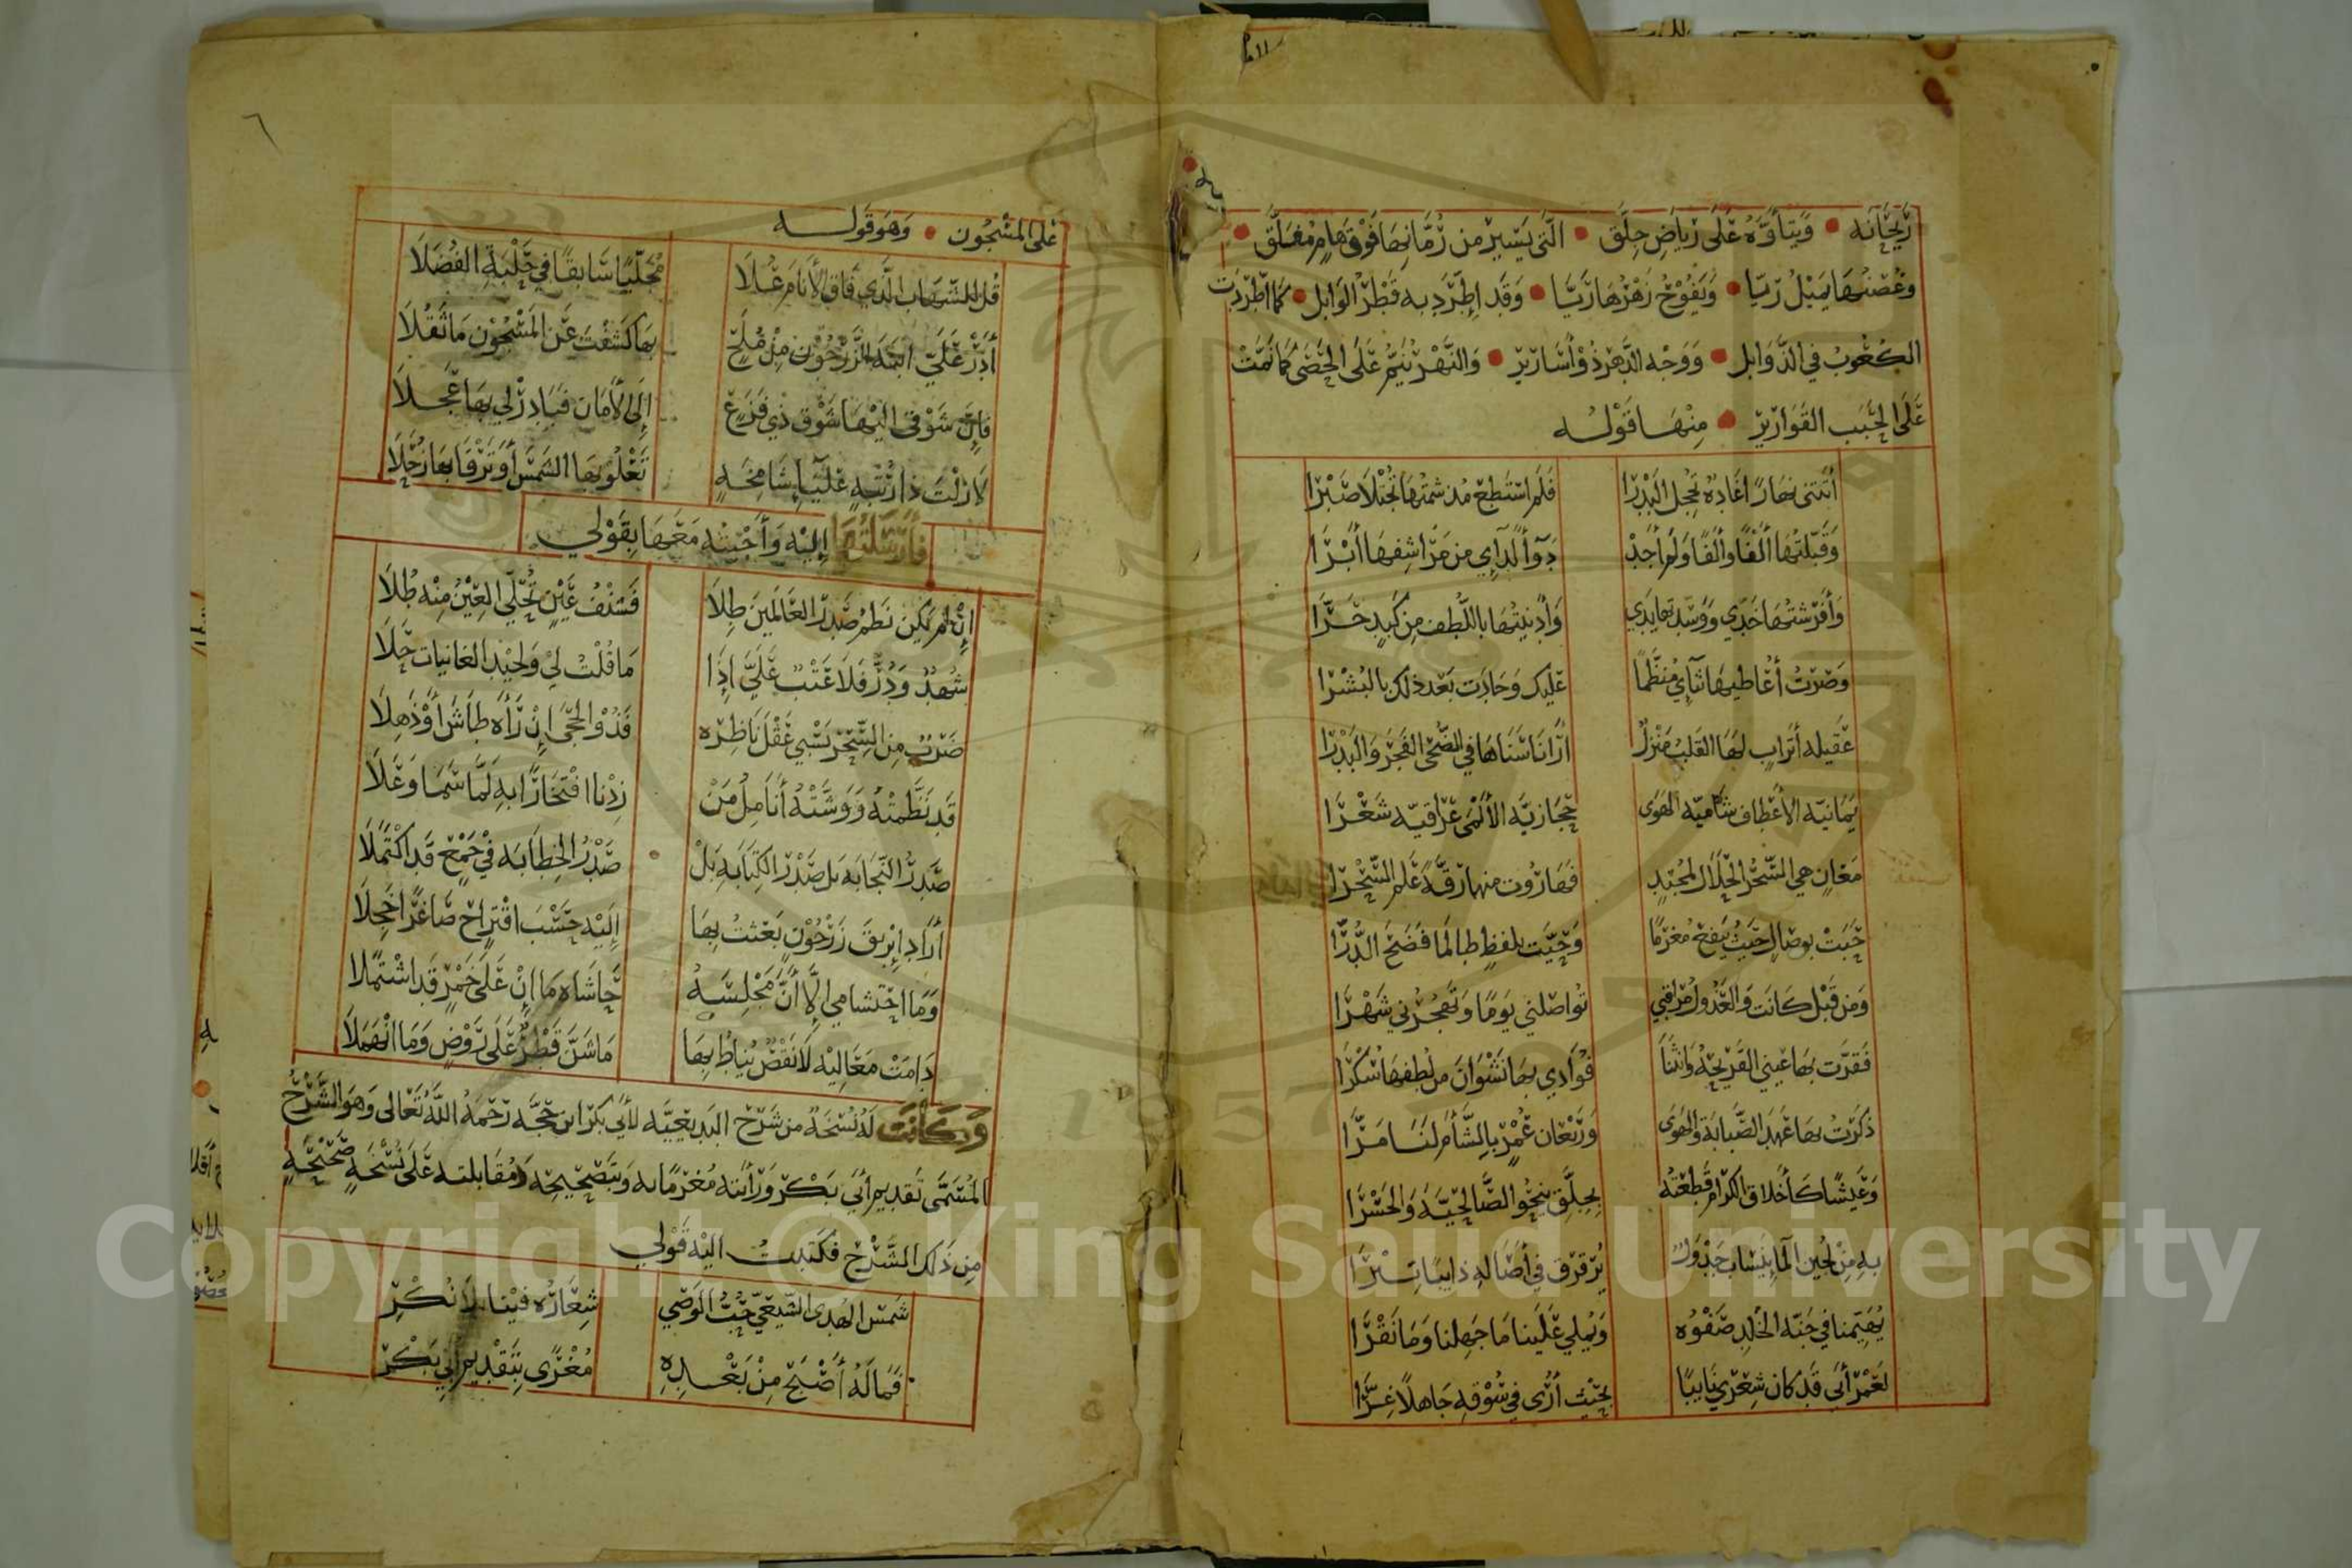 رَيحَانَه • وَيتَأوَّهُ عَلَى رِيَاضِ جِلَّق • الَّتى يَسِيرُ من رُمَّانِهَا فَوْقَ هَامٍ مُعَلَّق •
وغُصْنُهَا يَمِيْلُ رَيّا • وَيَفُوْحُ زَهْرُهَا رَيَّا • وَقَد اِطَّرَد به قَطْرُ الوَابِل • كمَا اطَّرَدت
الكعُوبُ في الذَّوَابِل • وَوَجْه الدَّهرِ ذُوْ أَسَارِيْر • وَالنَّهْر يَنِمُّ عَلَى الحَصَى كمَا نَمَّتْ
عَلَى الحَبَب القَوَارِيْر • مِنْهَا قَوْلُه
أتَتنى نهَارًا غادةٌ تُخجل البَدْرَا فَلم أسْتَطِعْ مُذ شمْتُهَا تُجْتَلَا صَبْرَا
وَقَبَّلتُهَا ألْفًا وألفًا وَلم أجِدْ دَوَاً لدَاءِي من مَرَاشِفهَا أبْرَا
وَأفْرَشتُهَا خَدِّي وَوَسَّدتها يَدِي وَأدْنيتُهَا باللُّطف مِن كَبِدٍ حَرَّا
وَصِرْتُ أُعَاطيهَا ثنَاءِي مُنظَّمًا عَلَيك وَجَادَت بَعْد ذلك بالبُشْرَا
عَقيلة أترَابٍ لهَا القَلبُ مَنْزلٌ أرَانَا سَنَاهَا في الضُّحَى الفَجْرَ وَالبَدْرَا
يَمَانيّة الأعْطاف شَاميّة الهَوَى حِجَازيَّة الألْمَى عِرَاقيّة شَعْرَا
مَعَانٍ هي السِّحْرُ الحَلَال لمُجْتَدٍ فهَارُوت منهَا رِقَّةً عَلم السِّحْرَا
حَبَتْ بوصَالٍ حَيثُ ينفعُ مُغرمًا وَحَيَّت بلفظٍ طالمَا فَضَحَ الدُّرَّا
وَمن قَبْل كَانَت وَالعَذُولُ مُرَاقبي تُواصلني يَوْمًا وَتَهْجُرُني شَهْرَا
فَقرَّت بهَا عَيني القَرِيحَةُ وَانثنَا فؤَادي بهَا نَشْوَانَ من لُطفهَا سُكْرَا
ذكَرْتُ بهَا عَهدَ الصَّبابَة وَالهَوَى وَرَيْعَان عُمْرٍ بالشَّأم لنَا مَرَّا
وَعَيْشًا كَأخلَاق الكرَام قَطعْتُه بِجِلَّق نحْو الصَّالحِيَّة وَالجَسْرَا
بهِ مِنْ لجين المَا يَنْسَاب جَدْوَلٌ يُرَقرَق في أصَاله ذايبًا تِبْرَا
يُهَيِّمنا في جَنَّة الخلدِ صَفْوُه وَيُملي عَلَينا مَا جَهِلنا وَمَا نَقْرَا
لَعَمْرُ أبي قَد كان شِعْري نَايبًا بحَيْث أرَى في سُوْقه جَاهلًا غِرَّا
٦
عَلى المشْجُون • وَهوَ قَولــه
قُل للشّهَاب الَّذي فَاق الأنَامَ عُلَا مُجَلِّيًا سَابقًا في حَلْبَةِ الفُضَلَا
أَدِرْ عَليّ ابنَةَ الزَّرَجُوْن مِنْ مُلَحٍ بهَا كشَفْتَ عَن المَشْجُوْن مَا ثَقُلَا
فإنَّ شَوْقى اليْهَا شَوْق ذي فَزَعٍ إلَى الأمَان فَبَادِرْ لي بهَا عَجلَا
لَازِلْتَ ذَا رُتْبَةٍ عَليَاءِ شَامِخَةٍ تَعْلُو بهَا الشَّمْسَ أو تَرْقَا بهَا زُحَلَا
فأرْسَلتُهَا إليْه وَأجَبْتُه مَعَهَا بقَوْلي
إنْ لم يَكن نَظمُ صَدْرِ العَالَمين طِلَا فَشنْفُ عَيْنٍ تُحَلِّي العَيْنُ مِنْه طُلَا
شُهْدٌ وَدُرٌّ فَلَا عَتْبٌ عَلَيَّ إذَا مَا قُلْتُ لِيْ وَلِجيْد الغَانيَات حَلَا
ضَرْبٌ مِن السِّحْر يَسْبي عَقْلَ نَاظِرِه فَذُو الحِجَى إنْ رَأه طَاشَ أوْ ذَهلَا
قَد نَظَّمتْهُ وَوَشَّتْهُ أنَامِلُ مَنْ زِدْنا افْتخَارًا بهِ لمَّا سَمَا وَعَلَا
صَدرُ النَّجَابَة بَل صَدْرُ الكِتَابَة بَلْ صَدْرُ الخِطَابَة في جَمْعٍ قَد اكْتَمَلَا
أرَادَ إبْريقَ زَرَجُوْنٍ بَعَثتُ بهَا إلَيْه حَسْبَ اقْتِرَاحٍ صَاغرًا خَجِلَا
وَمَا احْتشامي إلَّا أنَّ مَجْلِسَهُ حَاشَاه مَا إنْ عَلَى خَمْرٍ قَد اشْتَمَلَا
دَامَتْ مَعَالِيْه لَا نَقْصٌ يُنَاطُ بهَا مَا سَنَّ قَطرٌ عَلَى رَوْضٍ وَمَا انْهَمَلَا
وَكانَت لهُ نُسْخَةٌ من شَرْح البَديعيَّة لأبي بَكرْ ابن حجَّه رَحمَهُ اللَّهُ تَعَالى وَهوَ الشَّرْحُ
المُسَمَّى تَقديم أبي بَكْر وَرَأيته مُغْرَمًا به وَبتَصْحِيحِه وَمُقَابلته عَلَى نُسْخَةٍ صَحيْحَةٍ
مِن ذَلك الشَّرْح فكَتَبتُ اليْه قَولي
شَمسَ الهُدَى الشّيعيّ حُبُّ الوَصِي شِعَارُه فيْنا بلَا نُكْرِ
فَمَا لَهُ أصْبَحَ مِنْ بَعْدِهِ مُغْرًى بتَقْديم أبي بَكْرِ
Copyright © King Saud University
1957